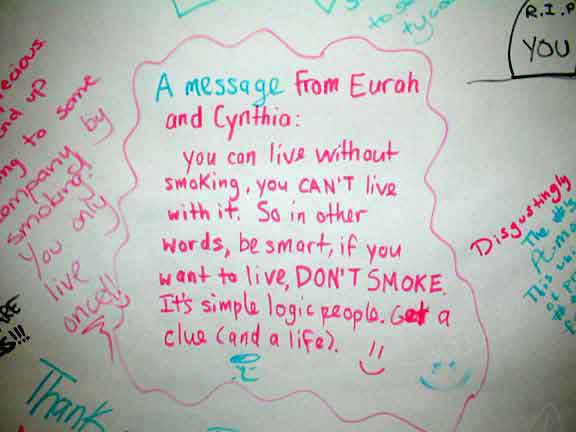 A message from Eurah
and Cynthia:
you can live without
smoking, you CAN'T live
with it. So in other
words, be smart, if you
want to live, DON'T SMOKE.
It's simple logic people. Get a
clue (and a life).
R.I.P
YOU
ecious
nd up
ng to some
ompany by
smoking!
You only
live
once!!
Disgustingly
The #1
This
Thank